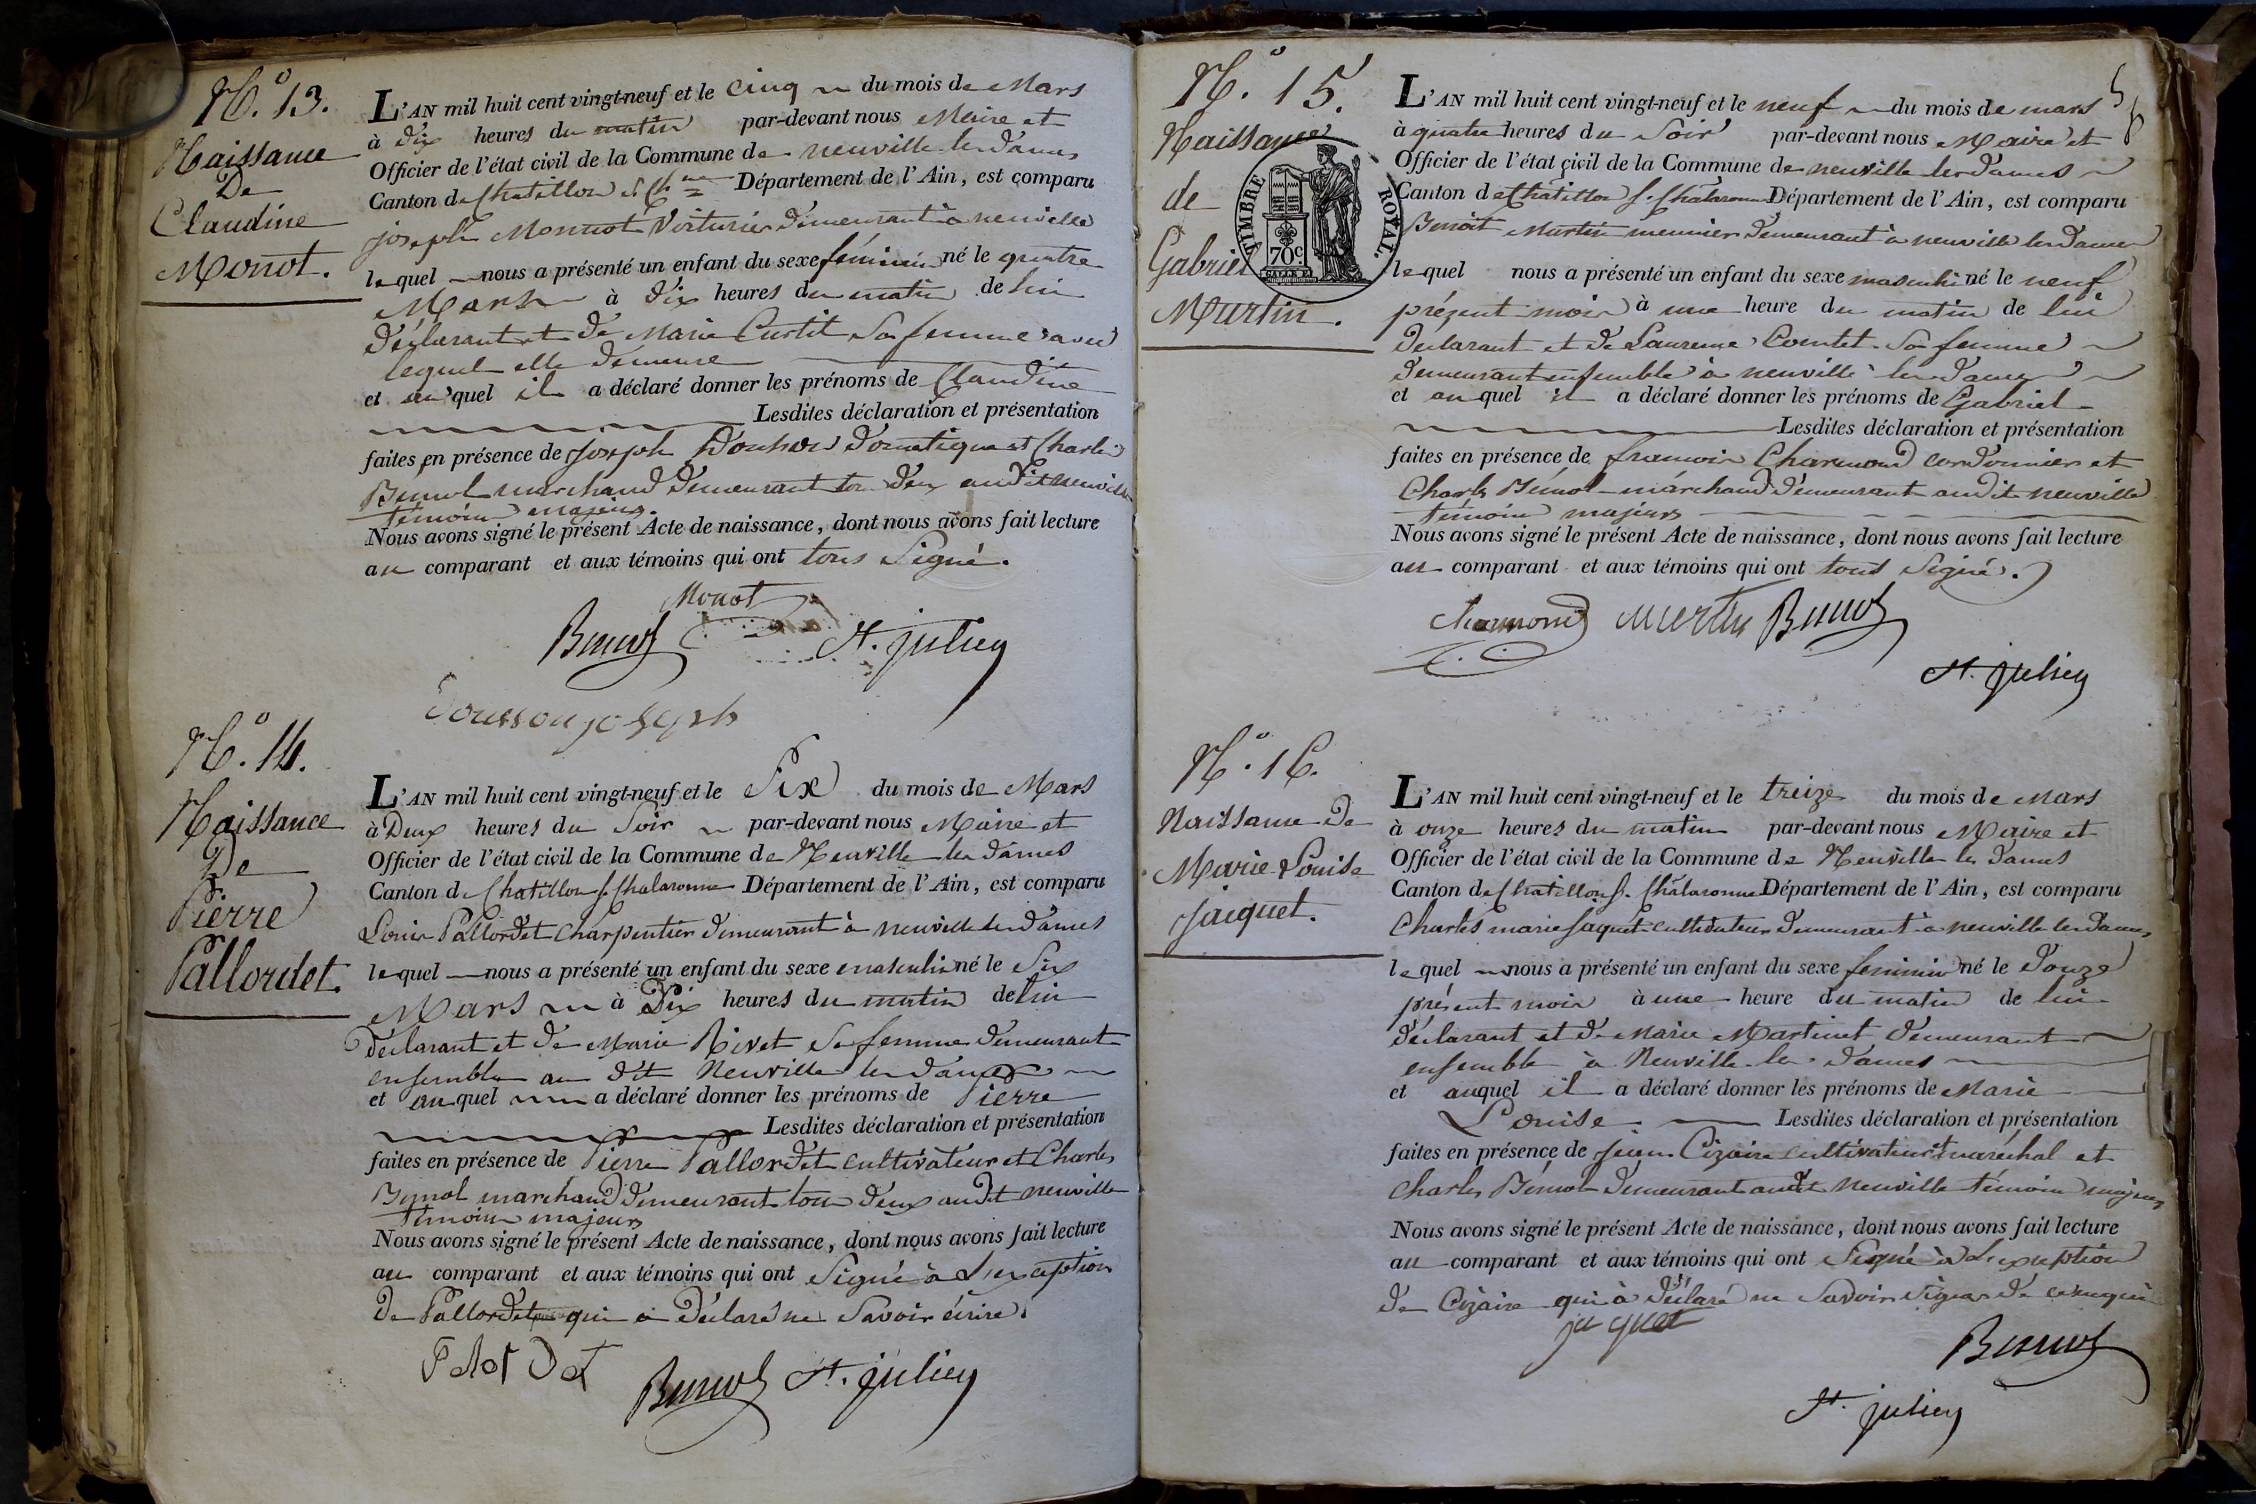 N.o 13.
Naissance
De
Claudine
Monot.
L'AN mil huit cent vingt-neuf et le cinq du mois de Mars
à dix heures du matin par-devant nous Maire et
Officier de l'état civil de la Commune de neuville les dames
Canton de Chatillon s. Ch.ne Département de l'Ain, est comparu
joseph Monnot Voiturier demeurant à neuville
lequel nous a présenté un enfant du sexe féminin né le quatre
Mars à dix heures du matin de lui
déclarant et de Marie Curtil sa femme avec
lequel elle demeure
et auquel il a déclaré donner les prénoms de Claudine
Lesdites déclaration et présentation
faites en présence de Joseph domestique et Charles
Bernol marchand demeurant tou deux audit neuville
témoins majeurs.
Nous avons signé le présent Acte de naissance, dont nous avons fait lecture
au comparant et aux témoins qui ont tous Signé.
Monot
Bernol St. julien
joseph
N.o 14.
Naissance
De
Pierre
Pallordet.
L'AN mil huit cent vingt-neuf et le Six du mois de Mars
à Deux heures du Soir par-devant nous Maire et
Officier de l'état civil de la Commune de Neuville les dames
Canton de Chatillon s. Chalaronne Département de l'Ain, est comparu
Louis Pallordet charpentier demeurant à neuville les dames
lequel nous a présenté un enfant du sexe masculin né le Six
Mars à Dix heures du matin de lui
déclarant et de Marie Rivet sa femme demeurant
ensemble au dit Neuville les dames
et auquel a déclaré donner les prénoms de Pierre
Lesdites déclaration et présentation
faites en présence de Pierre Pallordet cultivateur et Charles
Bernol marchand demeurant tou deux audit neuville
témoins majeurs
Nous avons signé le présent Acte de naissance, dont nous avons fait lecture
au comparant et aux témoins qui ont Signé à L'exception
De Pallordet qui a Déclaré ne Savoir écrire.
Palordet
Bernol St. julien
N.o 15.
Naissance
de
Gabriel
Martin.
TIMBRE ROYAL.
70 c.
L'AN mil huit cent vingt-neuf et le neuf du mois de mars
à quatre heures du Soir par-devant nous Maire et
Officier de l'état civil de la Commune de neuville les dames
Canton de Chatillon s. Chalaronne Département de l'Ain, est comparu
Benoit Martin meunier demeurant à neuville les dames
lequel nous a présenté un enfant du sexe masculin né le neuf
présent mois à une heure du matin de lui
declarant et de Laurence Comtet sa femme
demeurant ensemble à neuville les dames
et auquel il a déclaré donner les prénoms de Gabriel
Lesdites déclaration et présentation
faites en présence de francois Charmond cordonnier et
Charles Bernol marchand demeurant audit neuville
témoins majeurs
Nous avons signé le présent Acte de naissance, dont nous avons fait lecture
au comparant et aux témoins qui ont tous Signé.
Charmond Martin Bernol
St. julien
N.o 16.
Naissance De
Marie Louise
Jacquet.
L'AN mil huit cent vingt-neuf et le treize du mois de Mars
à onze heures du matin par-devant nous Maire et
Officier de l'état civil de la Commune de Neuville les dames
Canton de Chatillon s. Chalaronne Département de l'Ain, est comparu
Charles marie Jaquet cultivateur demeurant à neuville les dames
lequel nous a présenté un enfant du sexe feminin né le douze
présent mois à une heure du matin de lui
déclarant et de Marie Martinet demeurant
ensemble à Neuville les dames
et auquel il a déclaré donner les prénoms de Marie
Louise Lesdites déclaration et présentation
faites en présence de Jean Cizaire cultivateur et maréchal et
Charles Bernol demeurant audit Neuville témoins majeurs
Nous avons signé le présent Acte de naissance, dont nous avons fait lecture
au comparant et aux témoins qui ont Signé à L'exception
De Cizaire qui a déclaré ne Savoir Signer de ce enquis
jaquet
Bernol
St. julien